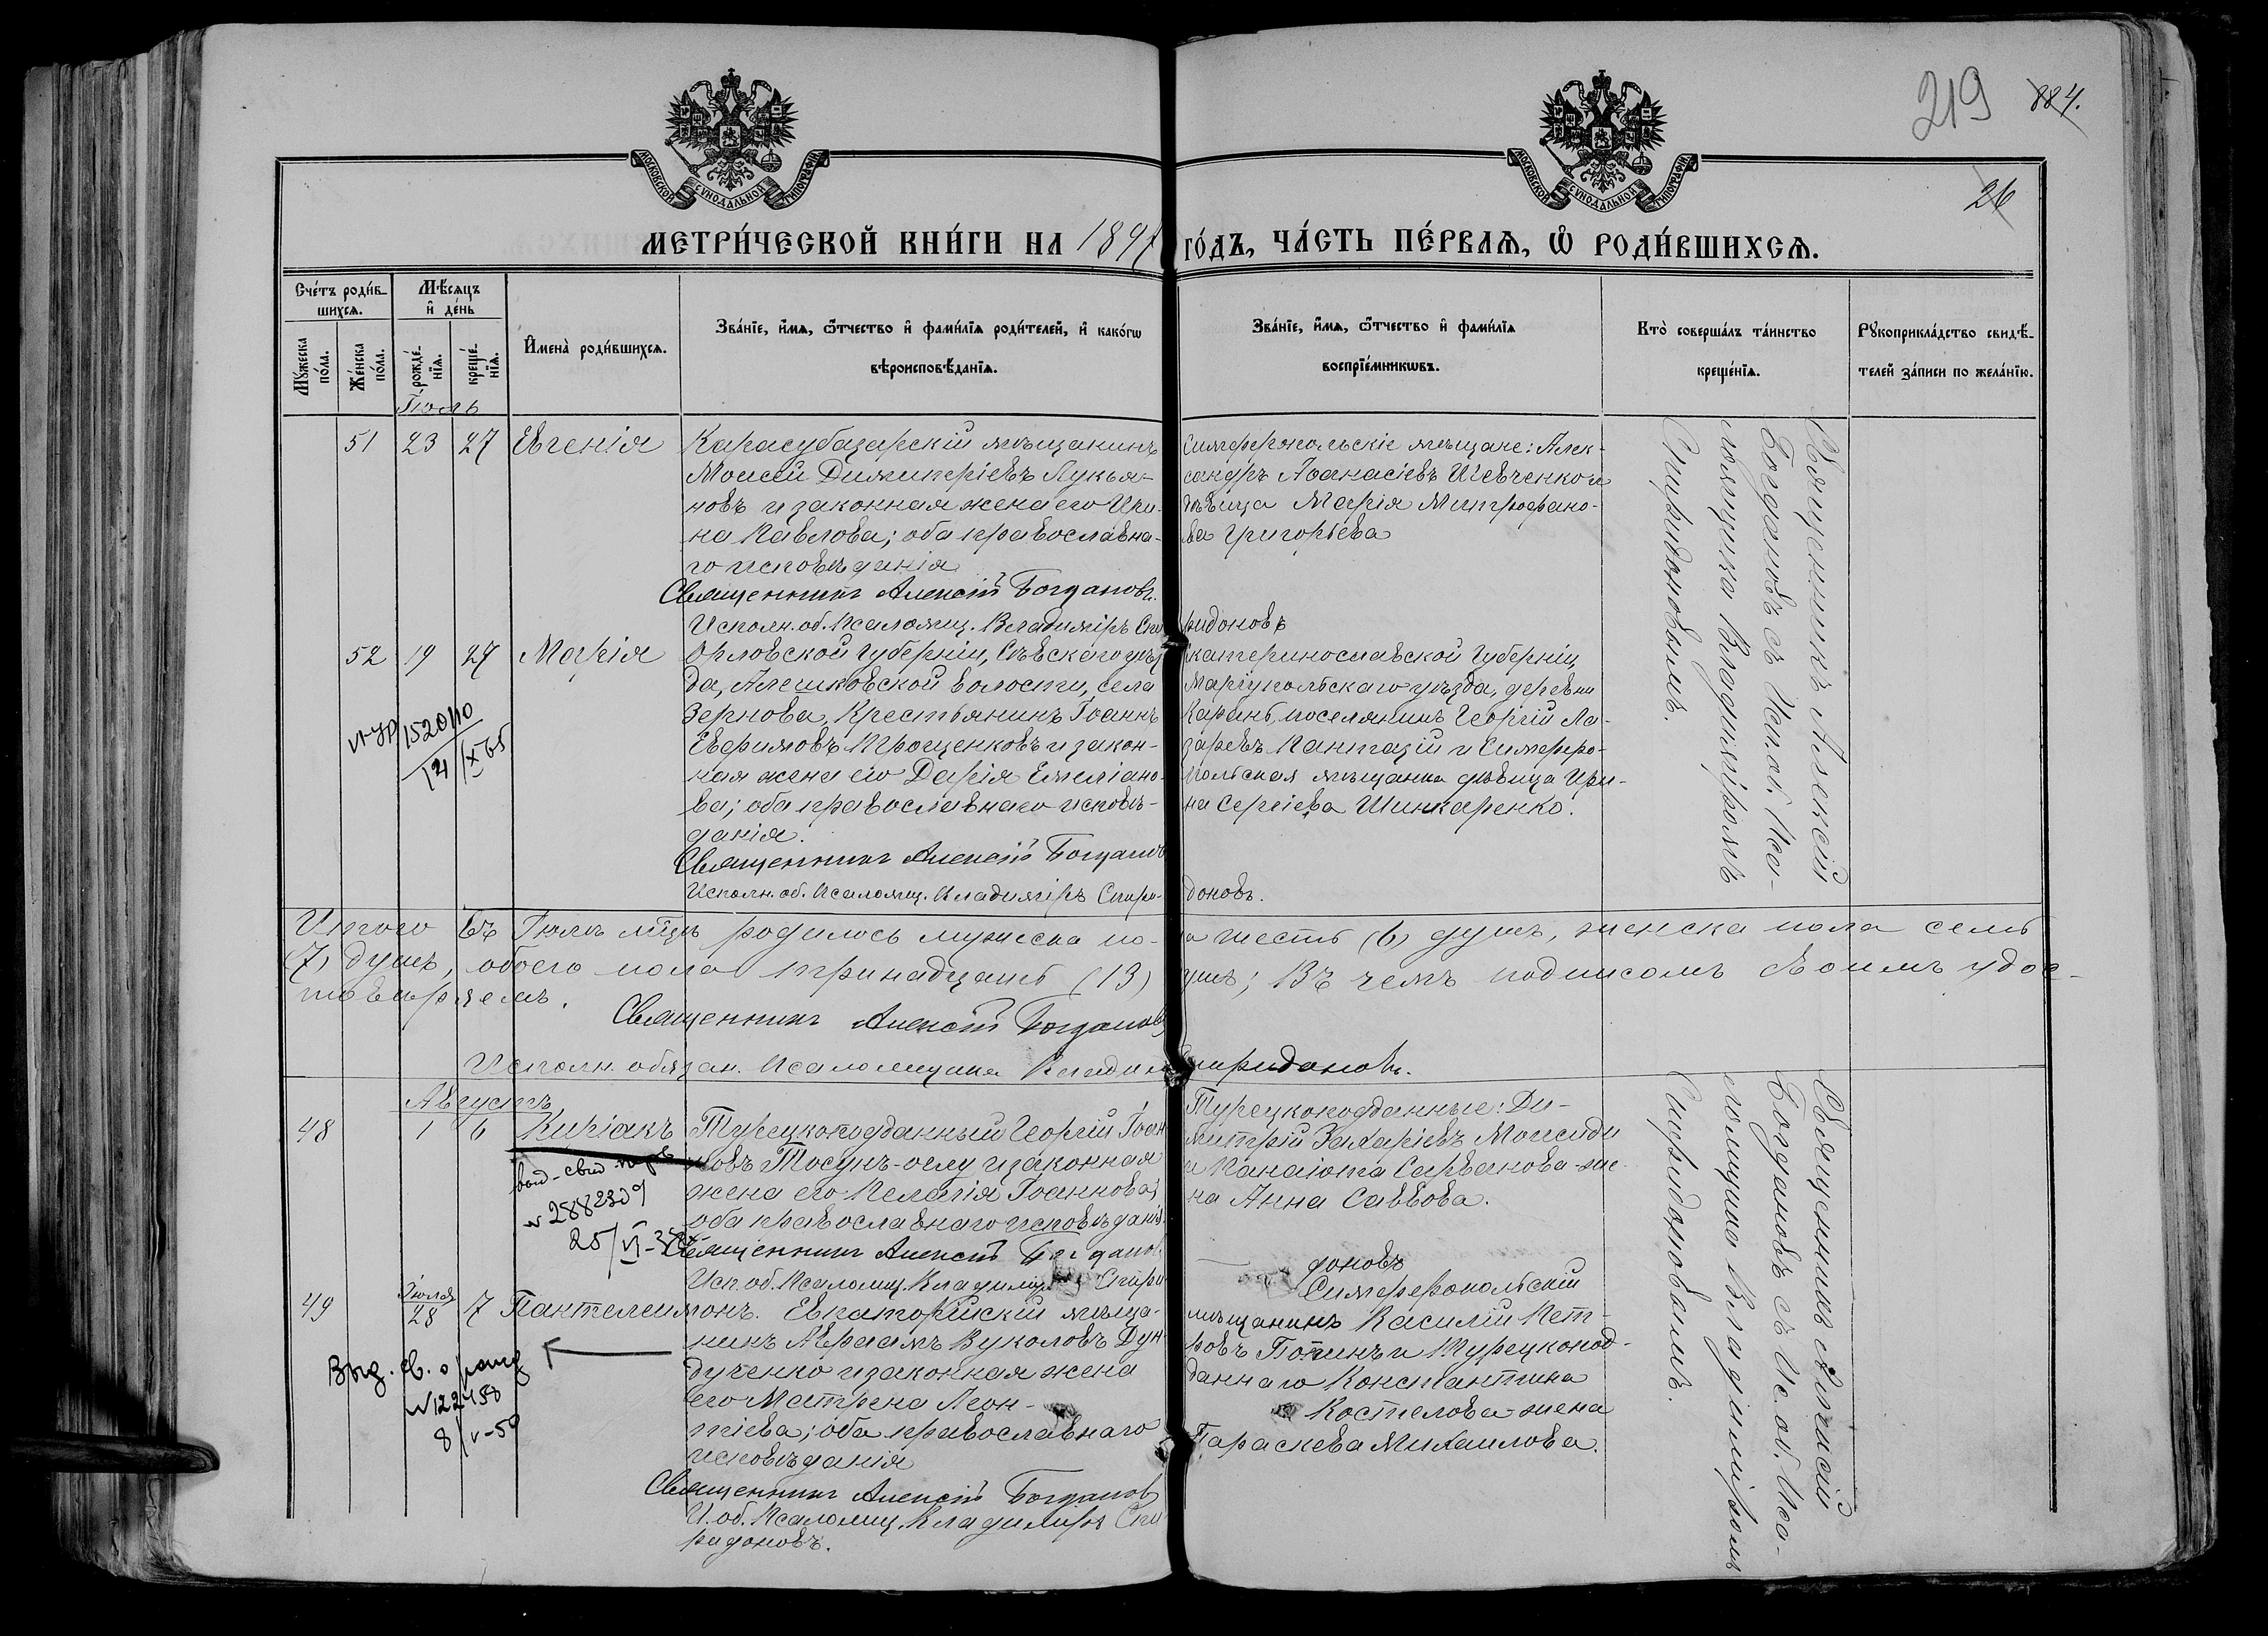 219 884.
26
МОСКОВСКОЙ СѴНОДАЛЬНОЙ ТИПОГРАФІИ
МОСКОВСКОЙ СѴНОДАЛЬНОЙ ТИПОГРАФІИ
МЕТРИ́ЧЕСКОЙ КНИ́ГИ НА 1897 ГО́ДЪ, ЧА́СТЬ ПЕ́РВАЯ, Ѡ҆ РОДИ́ВШИХСЯ.
Сче́тъ роди́в-
шихся.
Мѣ́сяцъ
и҆ де́нь
Мꙋ́жеска
по́ла.
Же́нска
по́ла.
рожде́-
нїя.
креще́-
нїя.
И҆мена̀ роди́вшихся.
Зва́нїе, и҆́мя, ѻ҆́тчество и҆ фами́лїя роди́телей, и҆ како́гѡ
вѣроисповѣ́данїя.
Зва́нїе, и҆́мя, ѻ҆́тчество и҆ фами́лїя
воспрїе́мникѡвъ.
Кто̀ соверша́лъ та́инство
креще́нїя.
Рꙋкоприкла́дство свидѣ́-
телей за́писи по жела́нїю.
Іюль
51 23 27 Евгенія
Карасубазарскій мѣщанинъ
Моисей Димитріевъ Лукья-
новъ и законная жена его Ири-
на Павлова; оба православна-
го исповѣданія
Священникъ Алексій Богдановъ.
Исполн. об. Псаломщ. Владиміръ Спиридоновъ
Симферопольскіе мѣщане: Алек-
сандръ Аѳанасіевъ Шевченко и
дѣвица Марія Митрофано-
ва Григорьева
Священникъ Алексій
Богдановъ съ Испол. об. Пса-
ломщика Владиміромъ
Спиридоновымъ.
52 19 27 Марія
Орловской губерніи, Сѣвскаго уѣз-
да, Алешковской волости, села
Зернова, Крестьянинъ Іоаннъ
Евфимовъ Прощенковъ и закон-
ная жена его Дарія Емиліано-
ва; оба православнаго исповѣ-
данія.
Священникъ Алексій Богдановъ
Исполн. об. Псаломщ. Владиміръ Спиридоновъ.
Екатеринославской губерніи,
Маріупольскаго уѣзда, деревни
Карань, поселянинъ Георгій Ла-
заревъ Пантазій и Симферо-
польская мѣщанка дѣвица Ири-
на Сергіева Шинкаренко.
152010
14/X 65
Итого въ Іюлѣ мѣцѣ родилось мужеска пола шесть (6) душъ, женска пола семь
(7) душъ, обоего пола тринадцать (13) душъ; въ чемъ подписомъ своимъ удос-
товѣряемъ.
Священникъ Алексій Богдановъ
Исполн. обязан. Псаломщика Владиміръ Спиридоновъ.
Августъ
48 1 6 Киріакъ
Турецкоподданный Георгій Іоан-
новъ Тосунъ-оглу и законная
жена его Пелагія Іоаннова;
оба православнаго исповѣданія.
Священникъ Алексій Богдановъ
Исп. об. Псаломщ. Владиміръ Спиридоновъ
Турецкоподданные: Ди-
митрій Захаріевъ Моисиди
и Панаіота Сарванова же-
на Анна Саввова.
выд. свид.
№ 2882309
25/VI-38
Священникъ Алексій
Богдановъ съ Ис. об. Пса-
ломщика Владиміромъ
Спиридоновымъ.
49 Іюля 28 7 Пантелеимонъ.
Евпаторійскій мѣща-
нинъ Авраамъ Вуколовъ Дун-
дученко и законная жена
его Матрена Леон-
тіева; оба православнаго
исповѣданія
Священникъ Алексій Богдановъ
И. об. Псаломщ. Владиміръ Спи-
ридоновъ.
Симферопольскій
мѣщанинъ Василій Пет-
ровъ Потинъ и Турецкопод-
даннаго Константина
Костелова жена
Параскева Михаилова.
Выд. св. о рожд
№ 122450
8/V-50